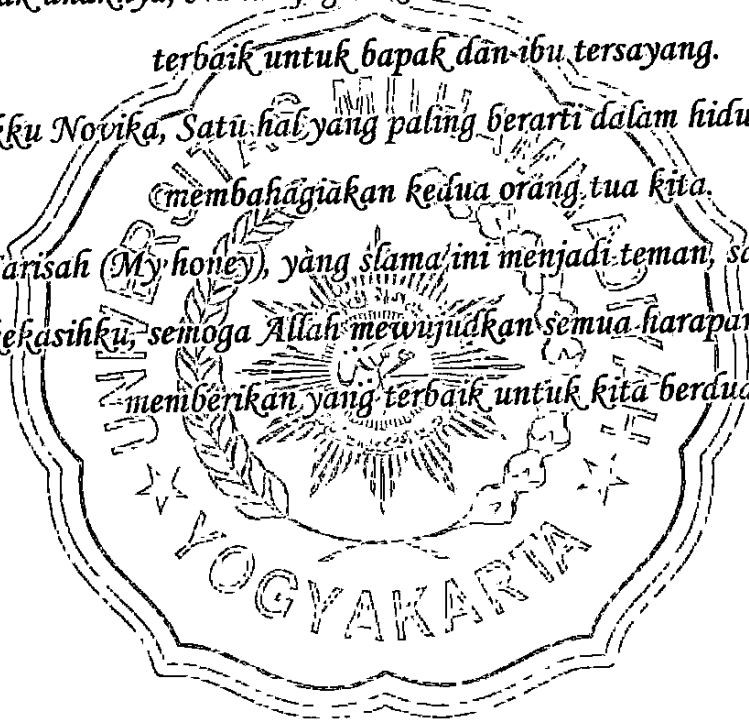 terbaik untuk bapak dan ibu tersayang.
Novika, Satu hal yang paling berarti dalam
membahagiakan kedua orang tua kita.
(My honey), yang slama ini menjadi teman,
semoga Allah mewujudkan semua harapan
memberikan yang terbaik untuk kita berdua
YOGYAKARTA